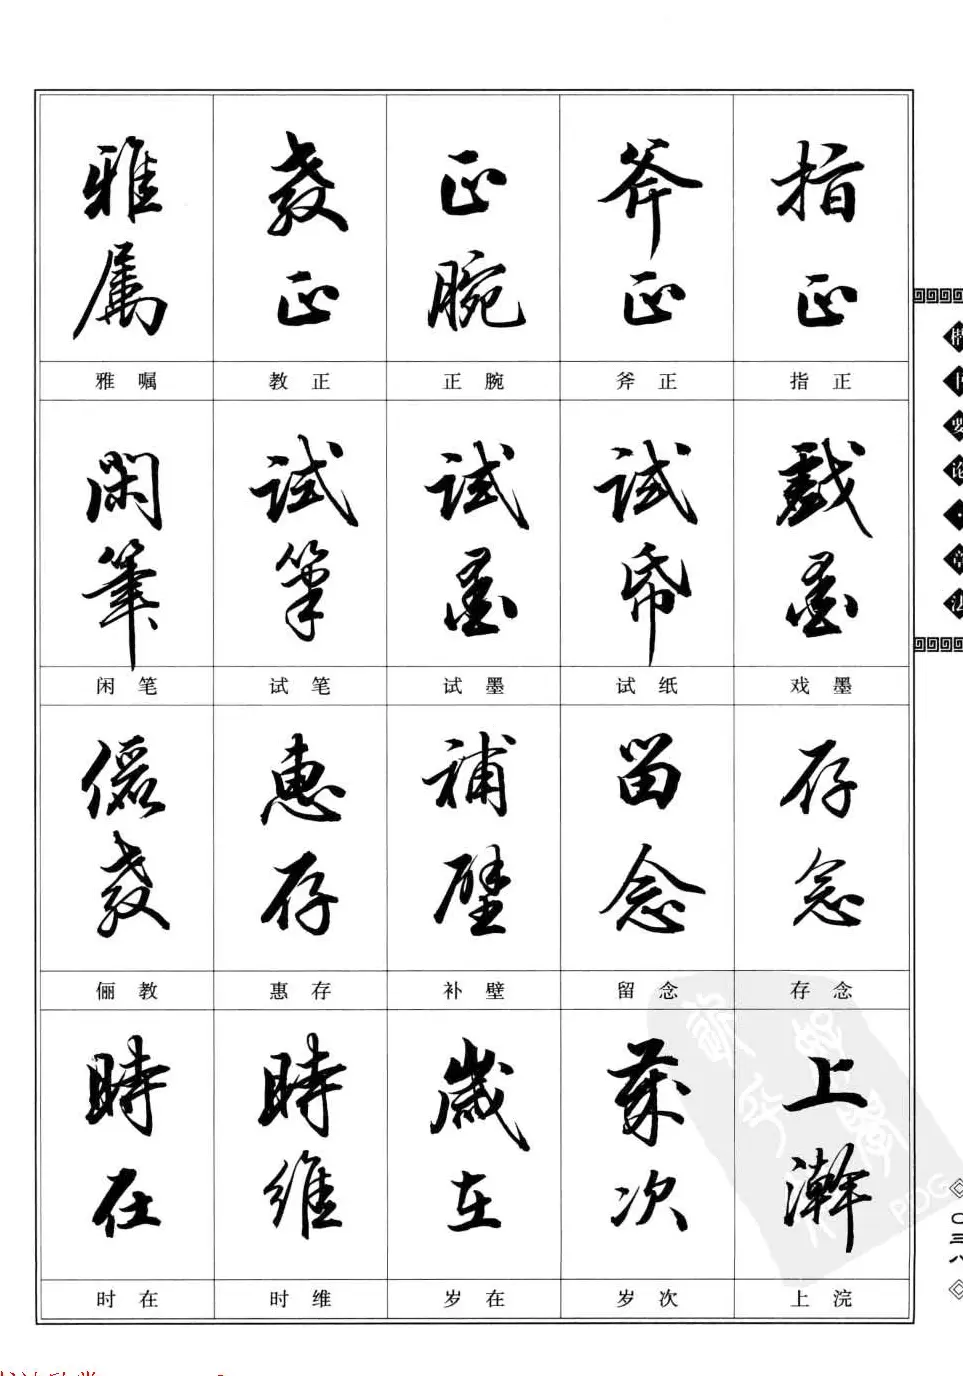 雅属 教正 正腕 斧正 指正
雅嘱 教正 正腕 斧正 指正
閑筆 試筆 試墨 試帋 戲墨
闲笔 试笔 试墨 试纸 戏墨
儷教 惠存 補壁 留念 存念
俪教 惠存 补壁 留念 存念
時在 時維 歲在 歲次 上澣
时在 时维 岁在 岁次 上浣
要论·章法
〇三八
PDG